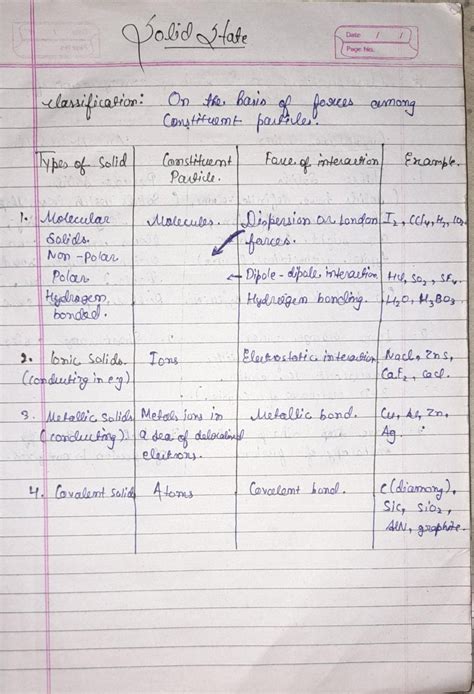 Solid State
Date / /
Page No.
Classification: On the basis of forces among
Constituent particles.
Types of Solid Constituent Particle. Force of interaction Example.
1. Molecular Molecules. Dispersion or London I2, CCl4, H2,
Solids. forces.
Non-Polar
Polar ← Dipole-dipole interaction HCl, SO2,
Hydrogen Hydrogen bonding. H2O, H3BO3
bonded.
2. Ionic Solids. Ions Electrostatic interaction NaCl, ZnS,
(conducting in eq) CaF2, CaCl.
3. Metallic Solids Metals ions in Metallic bond. Cu, Al, Zn,
(conducting) a sea of delocalised Ag.
electrons.
4. Covalent Solids Atoms Covalent bond. C(diamond),
SiC, SiO2,
AlN, graphite.